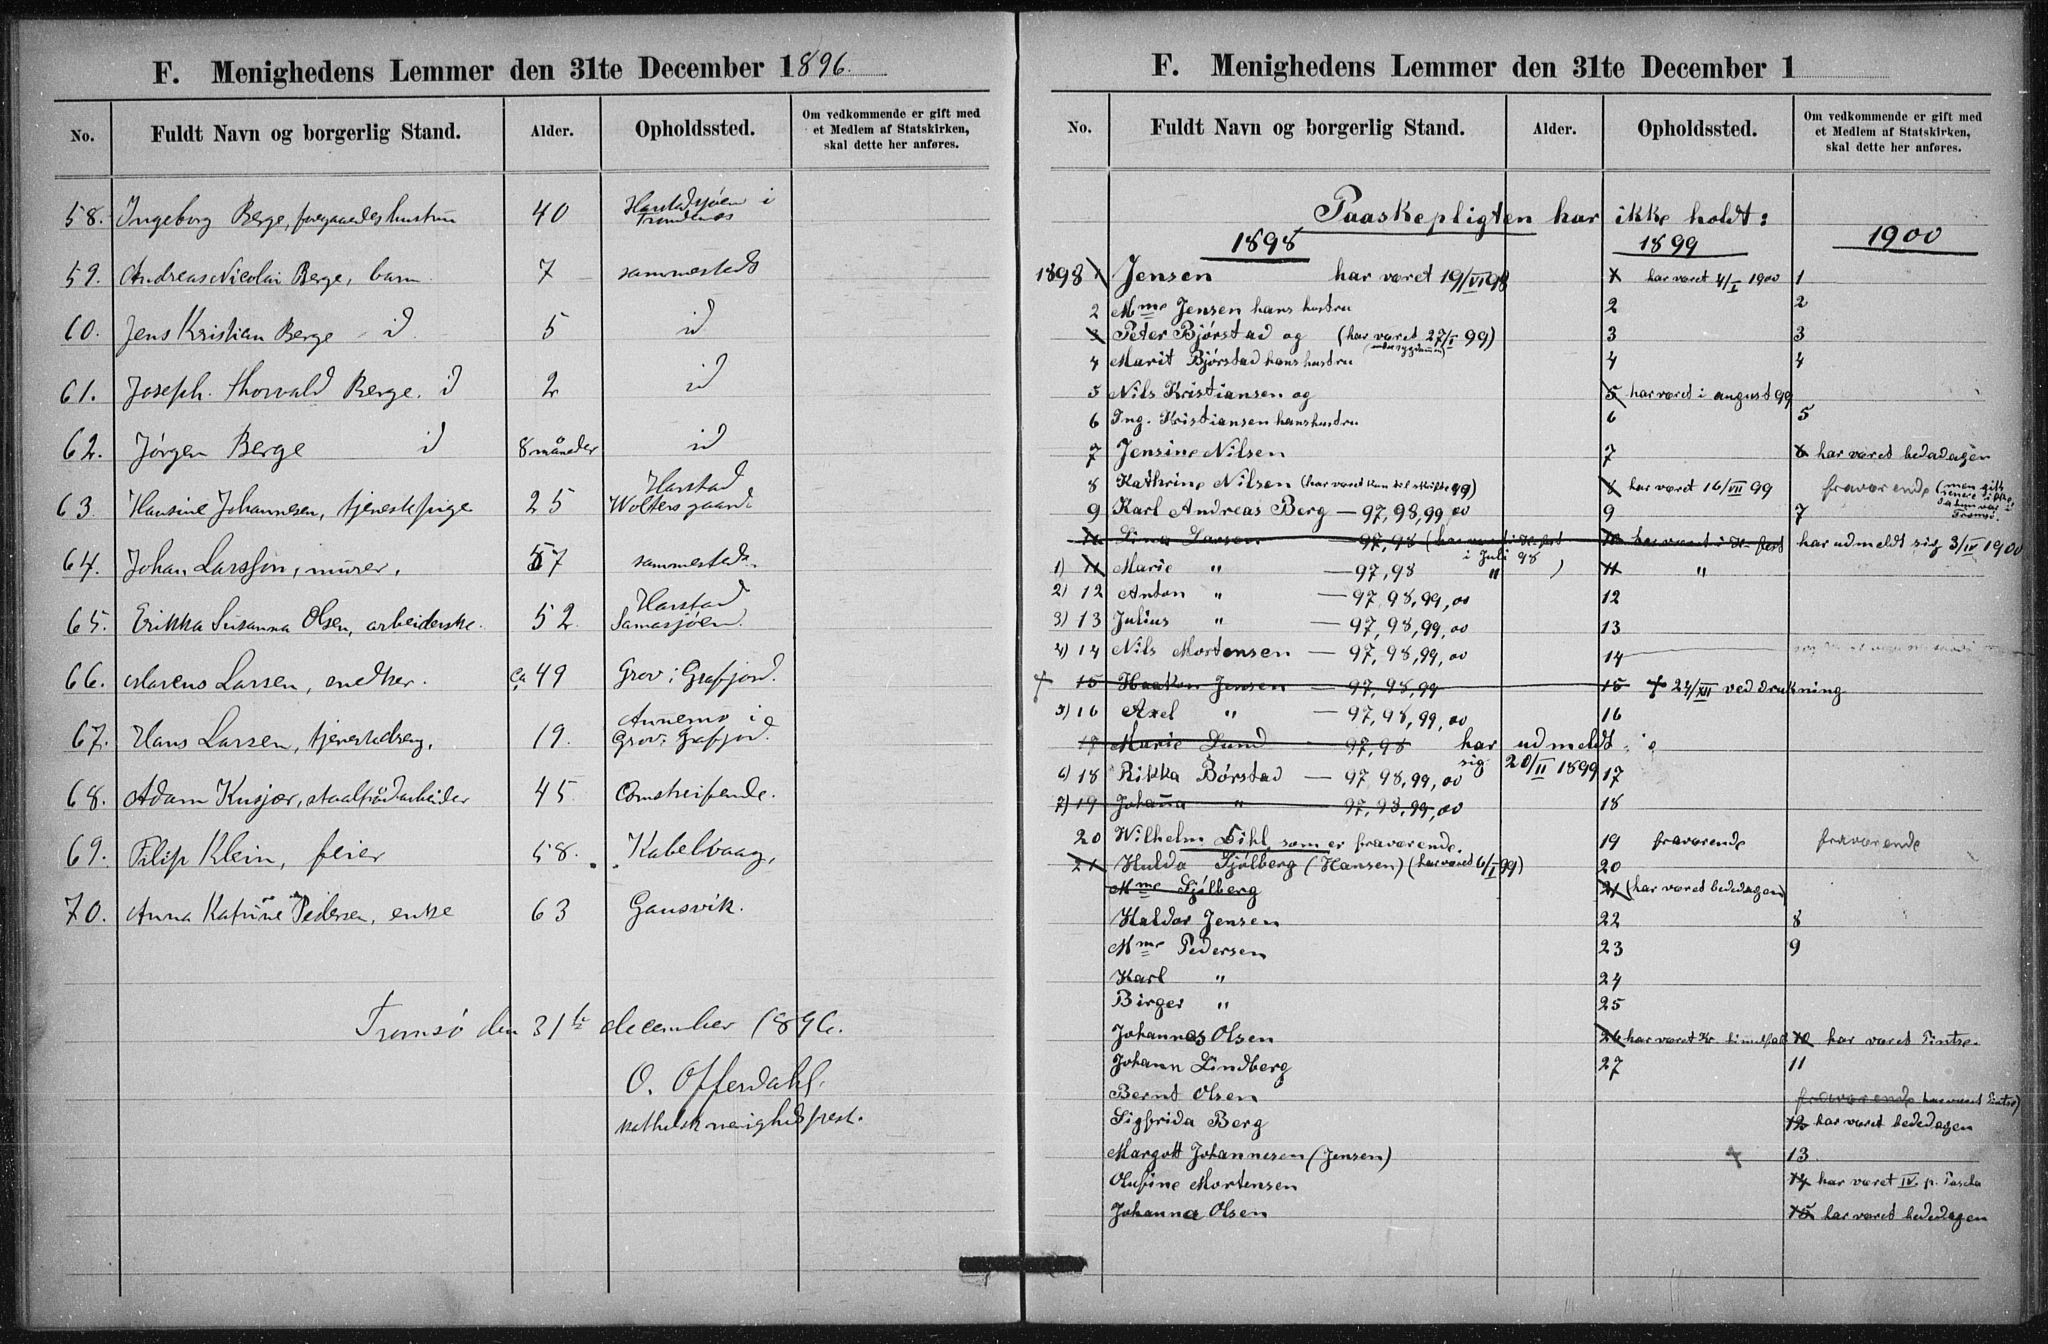 F. Menighedens Lemmer den 31te December 1896.
No. Fuldt Navn og borgerlig Stand. Alder. Opholdssted. Om vedkommende er gift med et Medlem af Statskirken, skal dette her anføres.
58. Ingeborg Berge, foregaaendes hustru 40 Haraldsjøen i Trondenæs
59. Andreas Nicolai Berge, barn 7 sammesteds
60. Jens Kristian Berge id 5 id
61. Joseph Thorvald Berge. id 2 id
62. Jørgen Berge id 8 måneder id
63. Hansine Johannesen, tjenestepige 25 Harstad Woltersgaard
64. Johan Larsson, murer, 57 sammesteds.
65. Erikka Susanna Olsen, arbeiderske. 52 Harstad Samasjøen.
66. Marens Larsen, enkker. ca 49 Grov i Grafjord.
67. Hans Larsen, tjenestedreng, 19. Annemo i Grov i Grafjord.
68. Adam Kusjær, staaltrådarbeider 45. Omstreifende.
69. Filip Klein, feier 58. Kabelvaag,
70. Anna Katrine Pedersen, enke 63 Gansvik.
Tromsø den 31te december 1896.
O. Offerdahl.
katholsk menighedsprest.
F. Menighedens Lemmer den 31te December 1
No. Fuldt Navn og borgerlig Stand. Alder. Opholdssted. Om vedkommende er gift med et Medlem af Statskirken, skal dette her anføres.
Paaskepligten har ikke holdt:
1898 1899 1900
1898 1 Jensen har været 19/VI 98 1 har været 4/I 1900 1
2 Mme Jensen hans hustru 2 2
3 Peter Bjørstad og (har været 27/I 99) 3 3
(under sygdommen)
4 Marit Bjørstad hans hustru 4 4
5 Nils Kristiansen og 5 har været i august 99
6 Ing. Kristiansen hans hustru 6 5
7 Jensine Nilsen 7 6 har været bededagen
8 Kathrine Nilsen (har været kun til skrifte 99) 8 har været 16/VII 99 fraværende (men gift
9 Karl Andreas Berg — 97, 98, 99, 00 9 7
10 Lina Larsen — 97, 98 10 har udmeldt sig 3/IV 1900
i Juli 98
1) 11 Marie " — 97, 98 " ) 11 "
2) 12 Anton " — 97, 98, 99, 00 12
3) 13 Julius " — 97, 98, 99, 00 13
4) 14 Nils Mortensen — 97, 98, 99, 00 14
+ 15 Haakon Jensen — 97, 98, 99 15 + 24/XII ved drukning
5) 16 Axel " — 97, 98, 99, 00 16
17 Marie Lund — 97, 98 har udmeldt
sig 20/II 1899
6) 18 Rikka Børstad — 97, 98, 99, 00 17
7) 19 Johana " — 97, 98, 99, 00 18
20 Wilhelm Dihl som er fraværende. 19 fraværende fraværende
21 Hulda Sjølberg (Hansen) (har været 6/I 99) 20
Mme Sjølberg 21 (har været bededagen)
Haldor Jensen 22 8
Mme Pedersen 23 9
Karl " 24
Birger " 25
Johannes Olsen 26 har været Kr. himmelf. 10 har været Pintse.
Johann Lindberg 27 11
Bernt Olsen fraværende har været Pintse)
Sigfrida Berg 12 har været bededagen
Margott Johannesen (Jensen) + 13
Olufine Mortensen 14 har været IV. p. Pascha
Johanna Olsen 15 har været bededagen